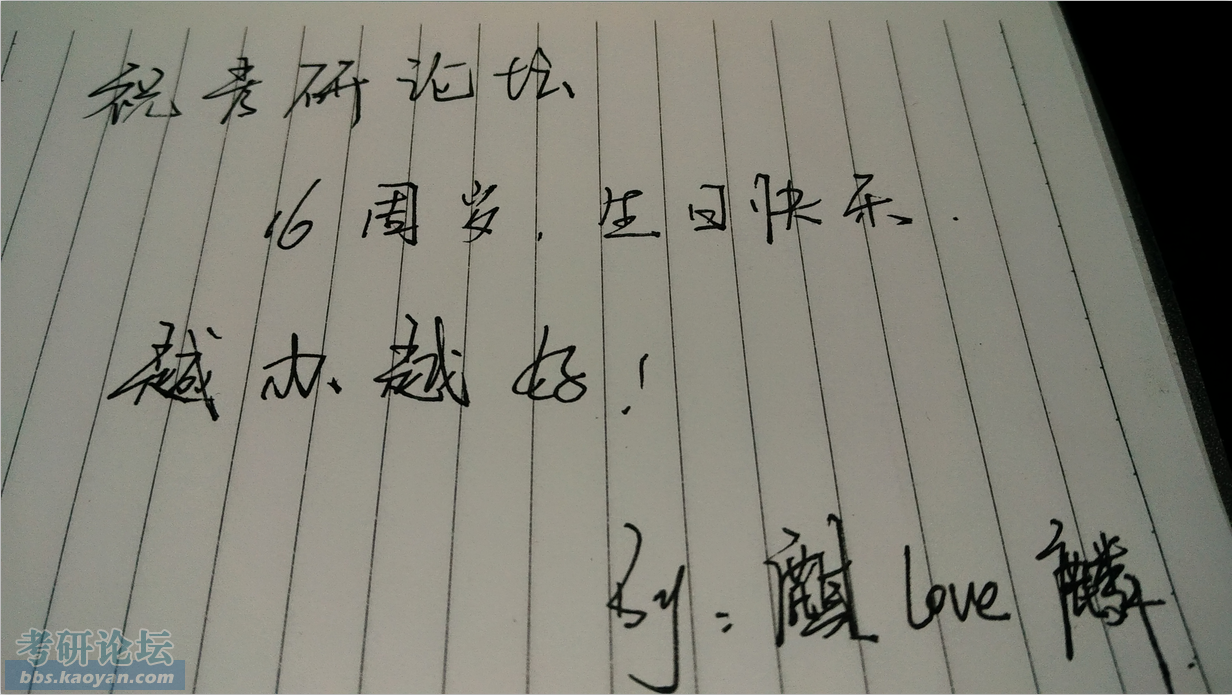 祝考研论坛
16周岁.生日快乐.
越办越好!
By:麒 love 麟.
考研论坛
bbs.kaoyan.com